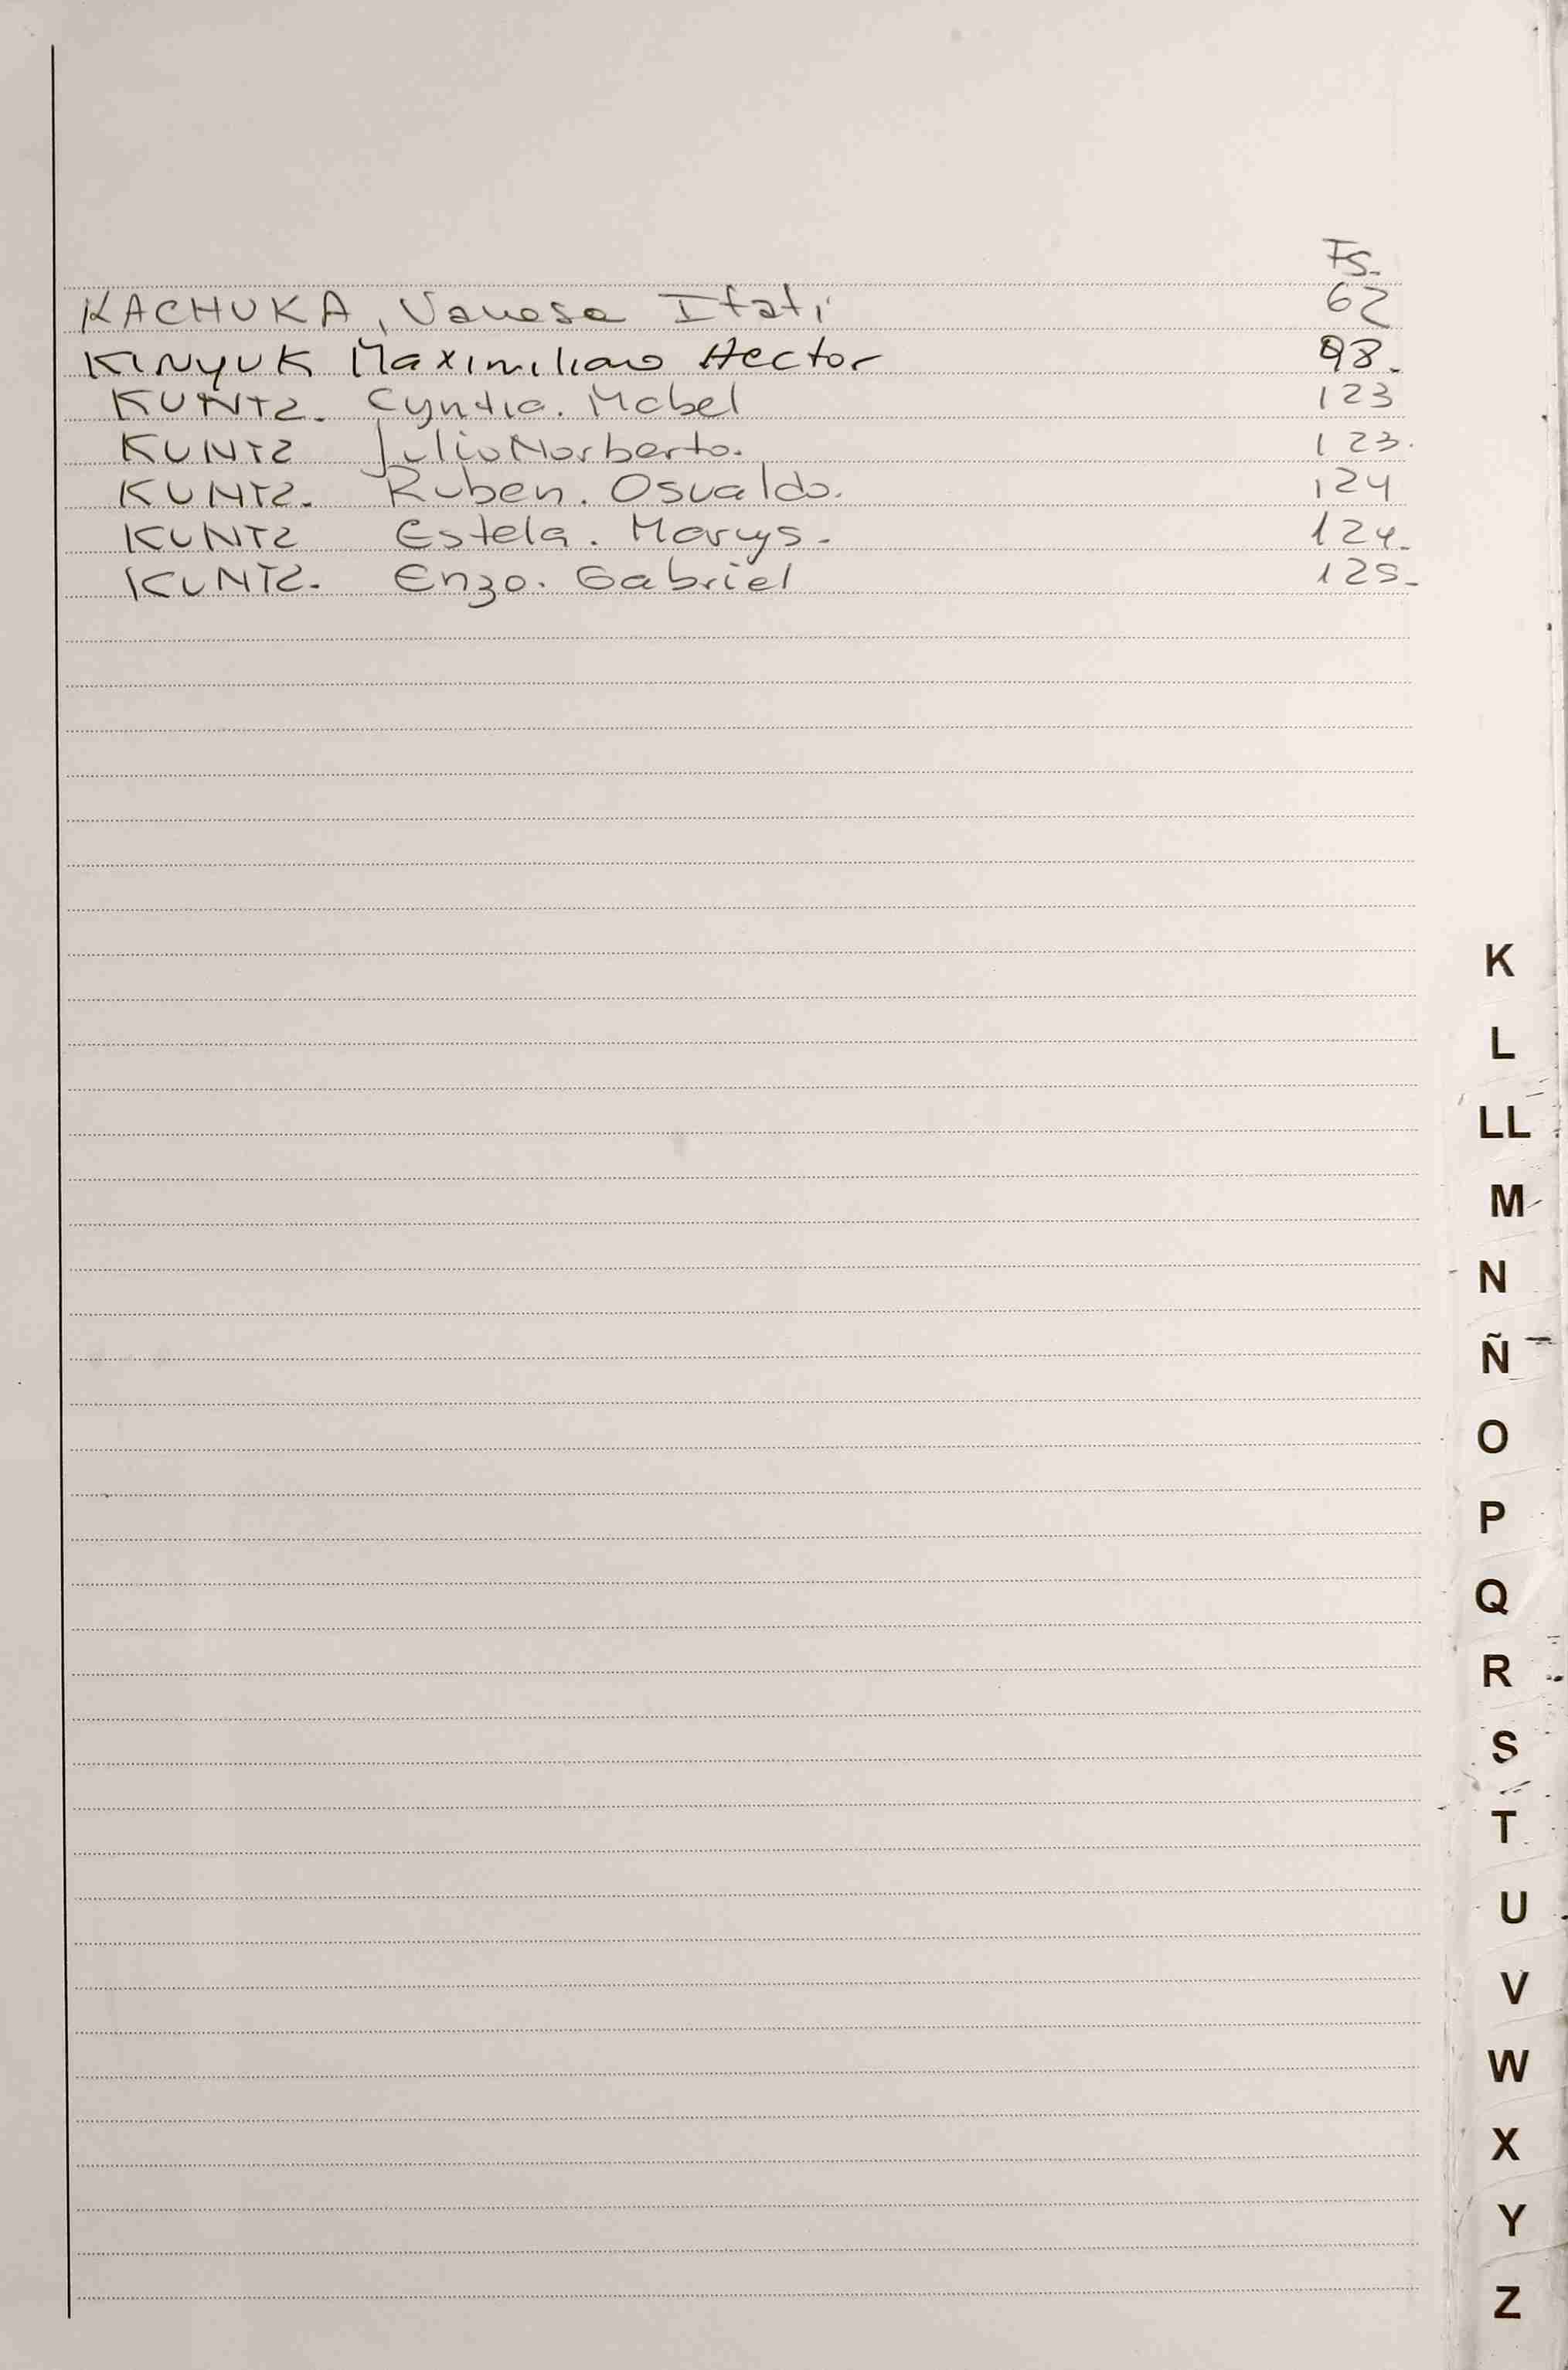 Fs.
KACHUKA, Vanesa Itati 62
KINYUK Maximiliano Hector 98.
KUNTZ. Cyntia. Mabel 123
KUNTZ Julio Norberto. 123.
KUNTZ. Ruben. Osvaldo. 124
KUNTZ Estela. Marys. 124.
KUNTZ. Enzo. Gabriel 125.
K
L
LL
M
N
Ñ
O
P
Q
R
S
T
U
V
W
X
Y
Z